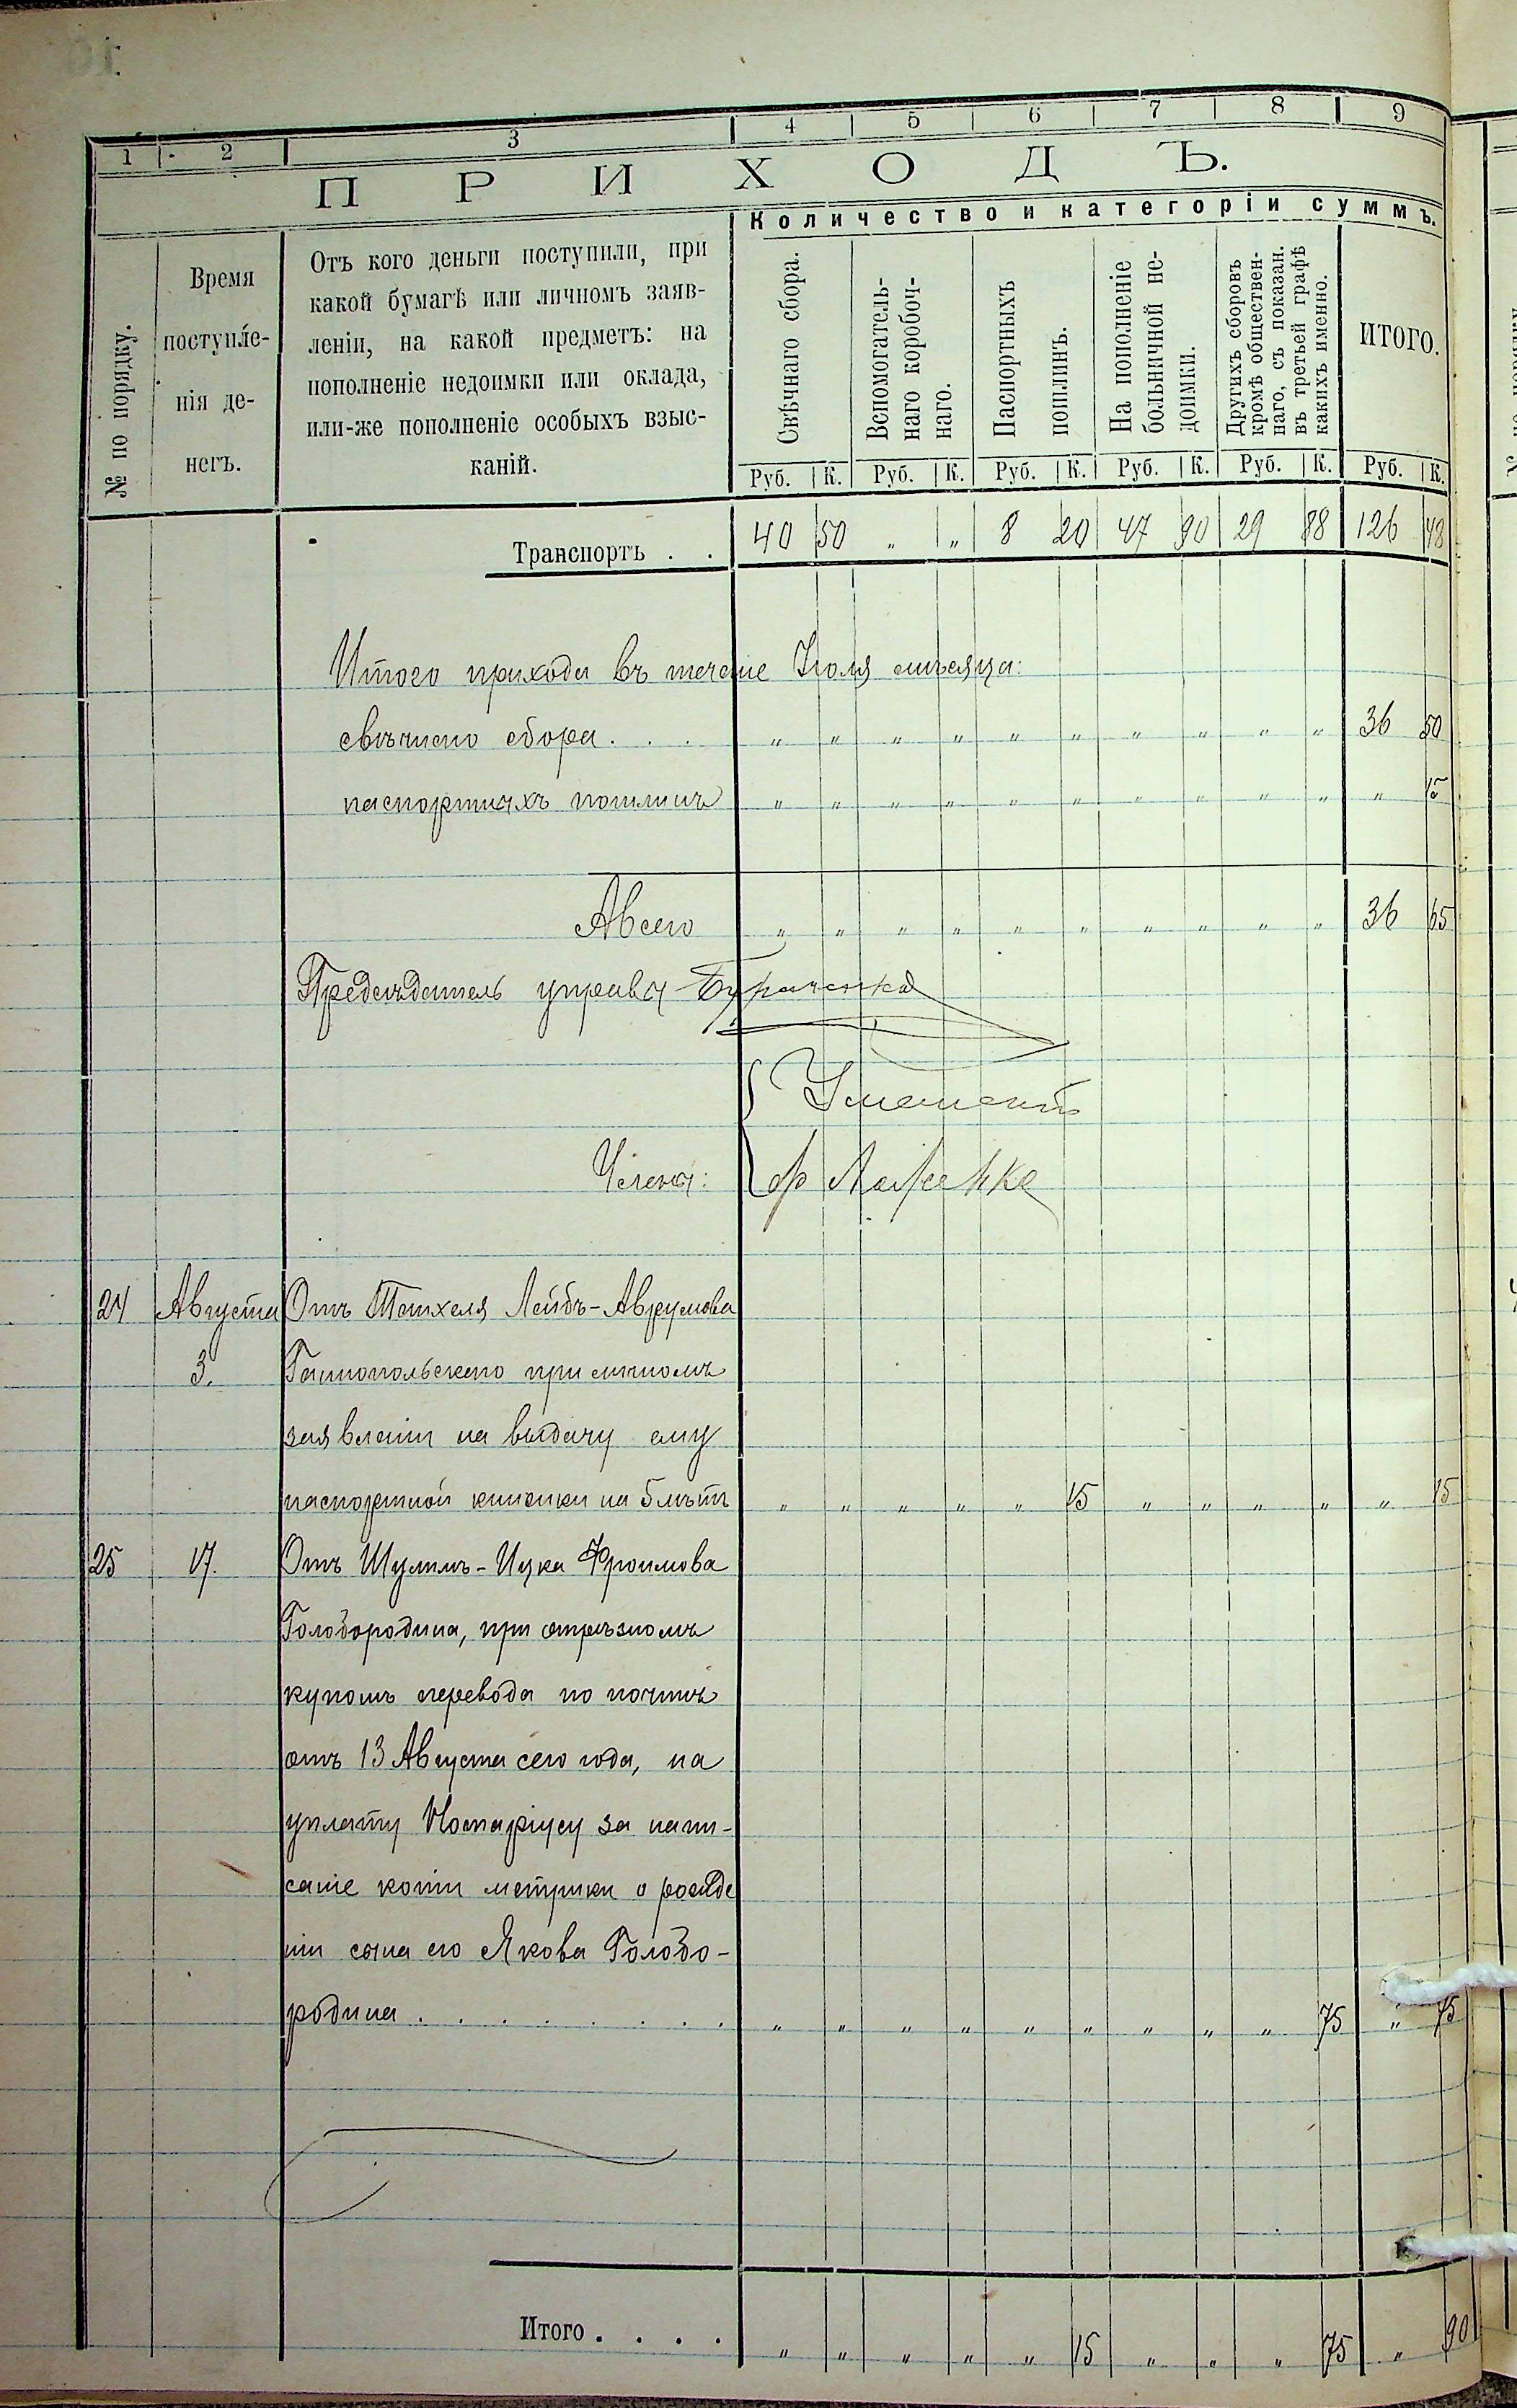 1 2 3 4 5 6 7 8 9
ПРИХОДЪ.
№ по порядку.
Время
поступле-
нія де-
негъ.
Отъ кого деньги поступили, при
какой бумагѣ или личномъ заяв-
леніи, на какой предметъ: на
пополненіе недоимки или оклада,
или-же пополненіе особыхъ взыс-
каній.
Количество и категоріи суммъ.
Свѣчнаго сбора.
Вспомогатель-
наго коробоч-
наго.
Паспортныхъ
пошлинъ.
На пополненіе
больничной не-
доимки.
Другихъ сборовъ
кромѣ обществен-
наго, съ показан.
въ третьей графѣ
какихъ именно.
ИТОГО.
Руб. К. Руб. К. Руб. К. Руб. К. Руб. К. Руб. К.
Транспортъ . . 40 50 " " 8 20 47 90 29 88 126 48
Итого прихода въ теченіе Іюля мѣсяца:
свѣчнаго сбора . . . " " " " " " " " " " 36 50
паспортныхъ пошлинъ " " " " " " " " " " " 15
А всего " " " " " " " " " " 36 65
Предсѣдатель управы Бураченко
Члены:
24 Августа Отъ Лейбъ-Аврумова
3. при личномъ
заявленіи на выдачу ему
паспортной книжки на 5 лѣтъ " " " " " 15 " " " " " 15
25 17. Отъ Шулимъ-Ицка Фроимова
Голобородина, при отрѣзномъ
купонѣ перевода по почтѣ
отъ 13 Августа сего года, на
уплату Нотаріусу за напи-
саніе копіи метрики о рожде
ніи сына его Якова Голобо-
родина . . . . . . . . " " " " " " " " " 75 " 75
Итого . . . . " " " " " 15 " " " 75 " 90